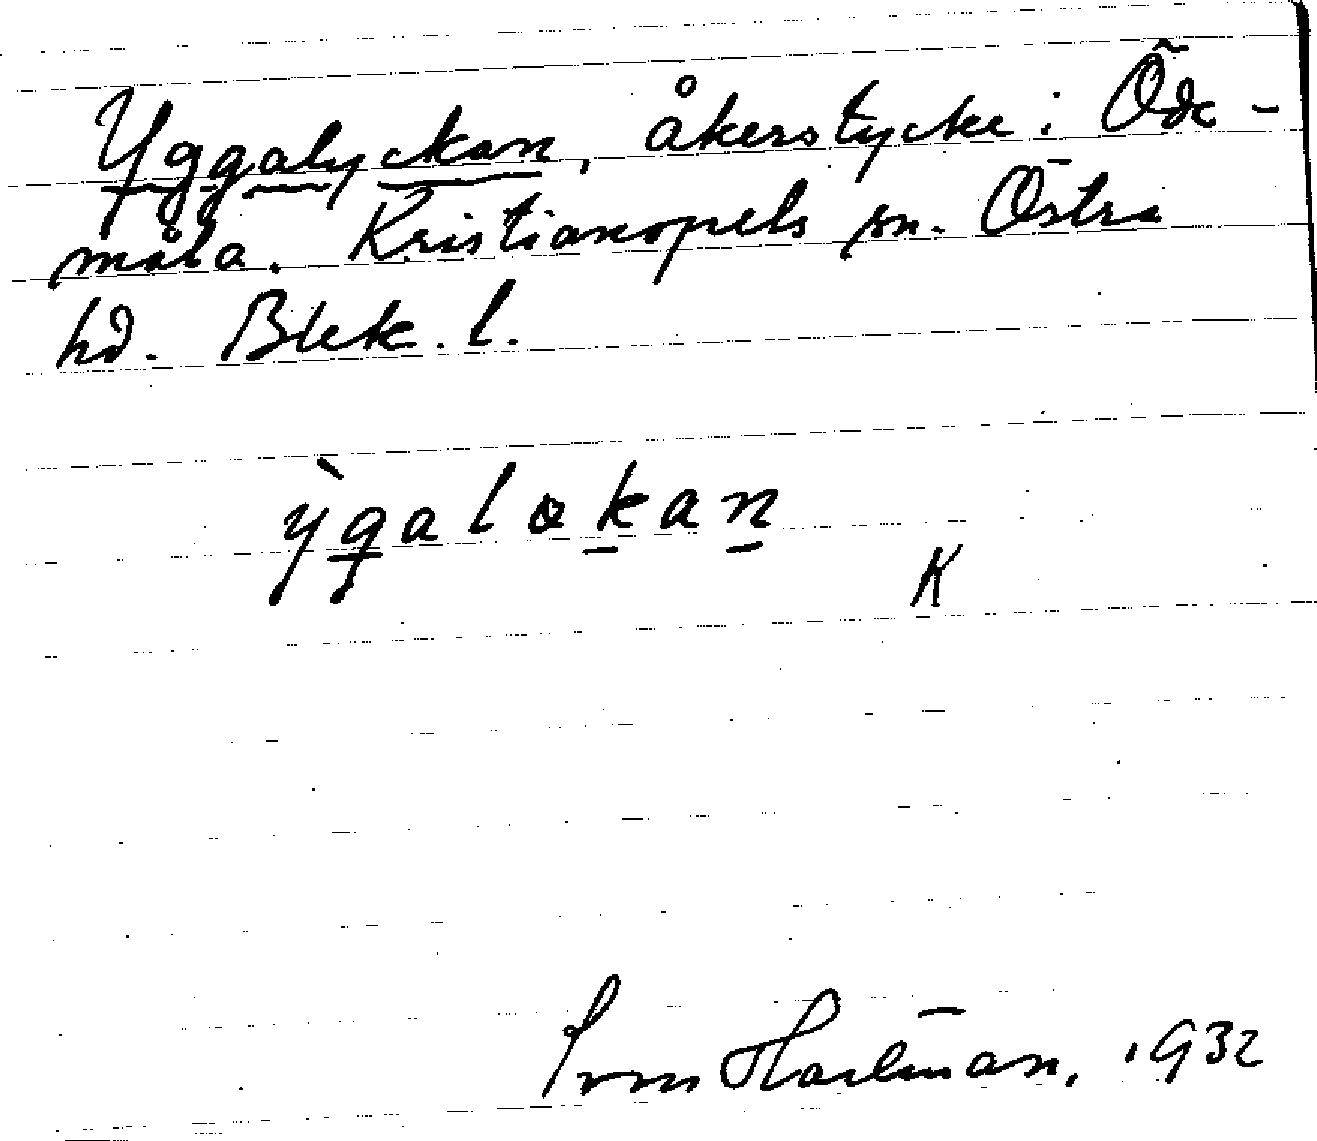 Yggalyckan, åkerstycke i Öde-
måla. Kristianopels sn. Östra
hd. Blek. l.
ỳgaløkan
K
Hartman, 1932